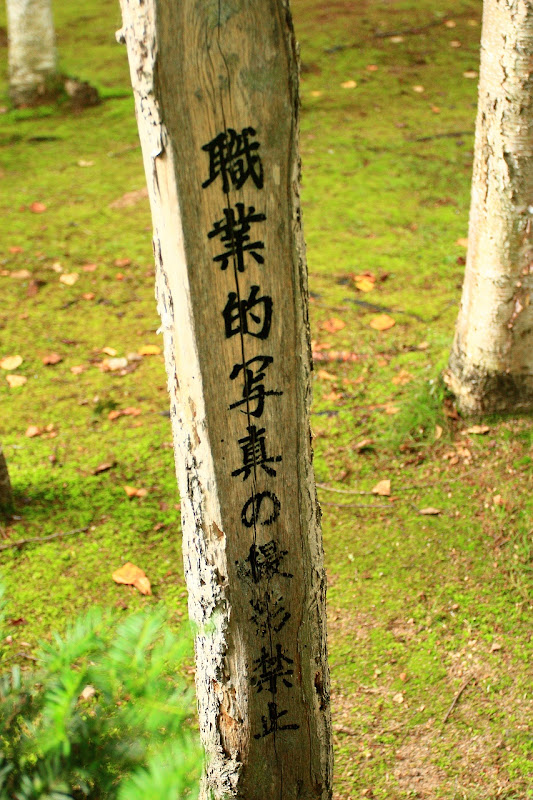 職業的写真の撮影禁止